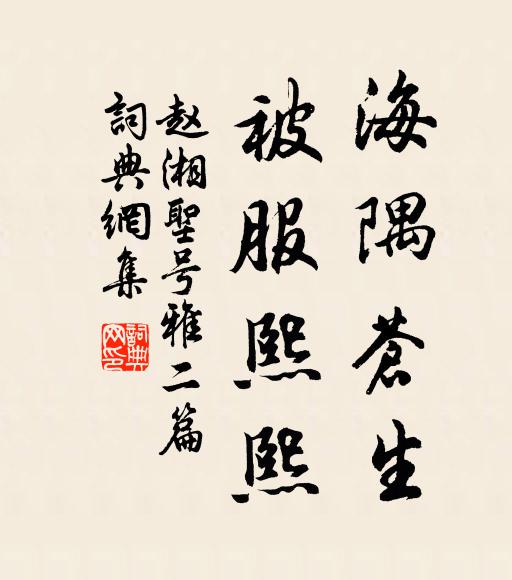 海隅蒼生
被服熙熙
赵湘聖号雅二篇
詞典網集
詞典网印